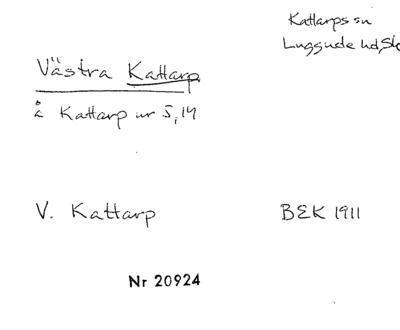 Kattarps sn
Luggude hd, Sk
Västra Kattarp
å Kattarp nr 5, 14
V. Kattarp
BEK 1911
Nr 20924